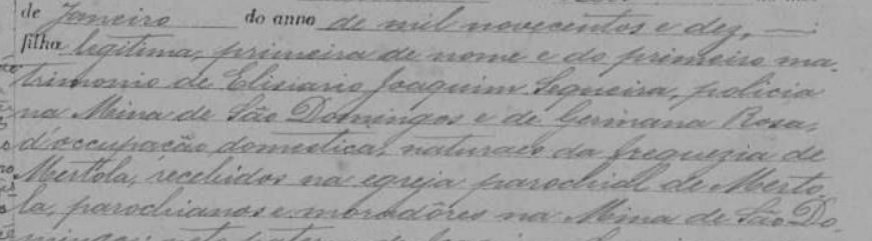 de Janeiro do anno de mil novecentos e dez,
filha legitima, primeira de nome e do primeiro ma-
trimonio de Elisiario Joaquim Sequeira, policia
na Mina de São Domingos e de Germana Rosa,
d'occupação domestica, naturaes da freguezia de
Mertola, recebidos na egreja parochial de Merto
la, parochianos e moradôres na Mina de São Do-